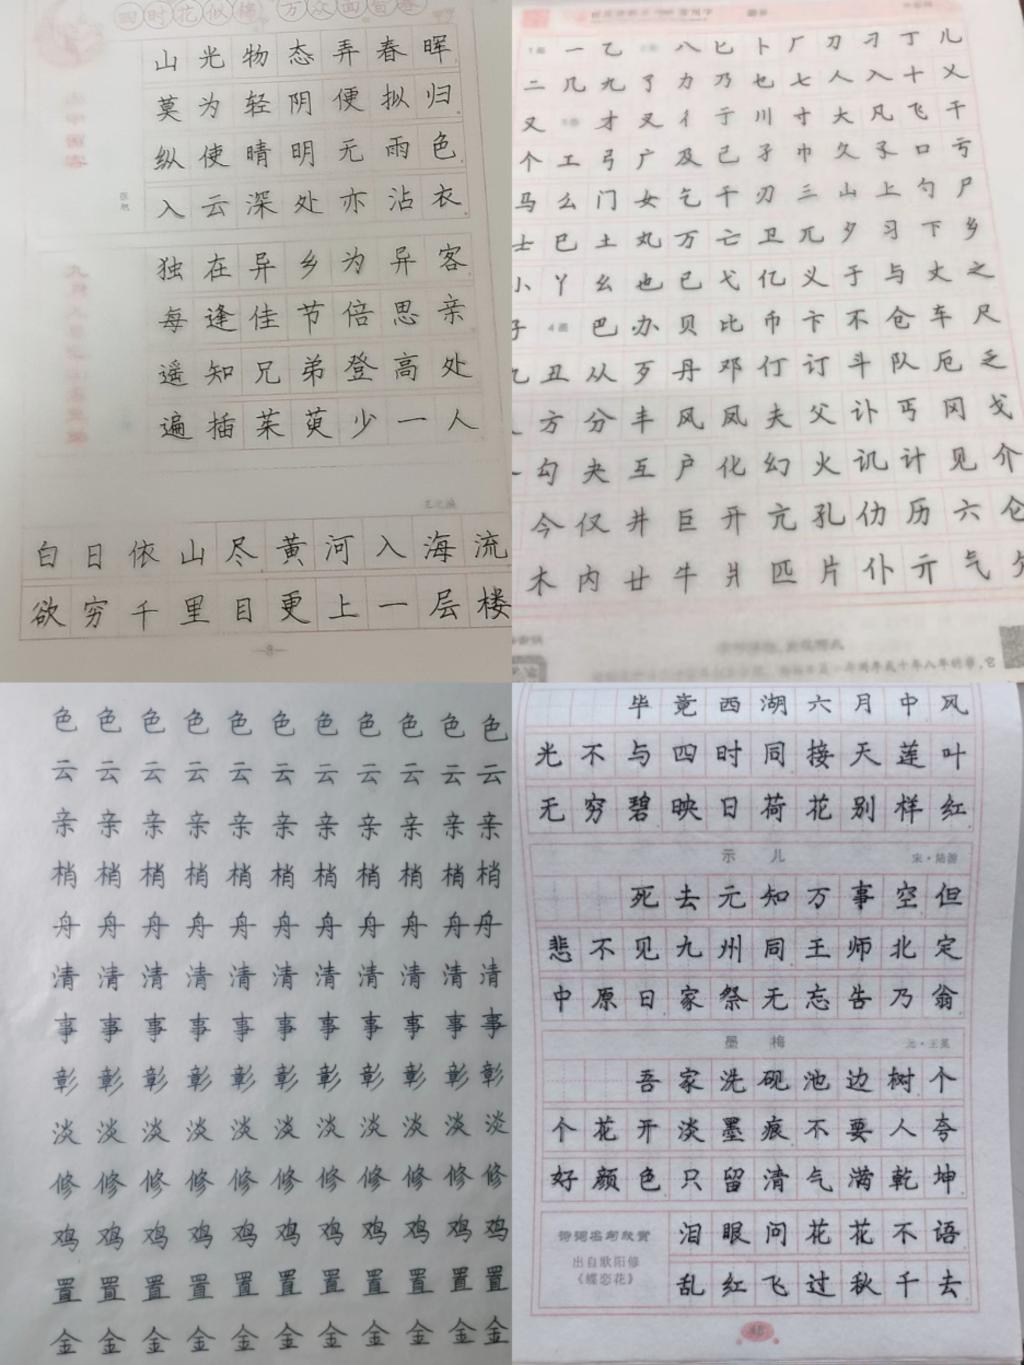 山光物态弄春晖
莫为轻阴便拟归
纵使晴明无雨色
入云深处亦沾衣
独在异乡为异客
每逢佳节倍思亲
遥知兄弟登高处
遍插茱萸少一人
白日依山尽黄河入海流
欲穷千里目更上一层楼
8
一乙 八匕卜厂刀刁丁儿
二几九了力乃也七人入十乂
又 才叉彳亍川寸大凡飞干
个工弓广及己孑巾久孓口亏
马么门女乞干刃三山上勺尸
士巳土丸万亡卫兀夕习下乡
小丫幺也已弋亿义于与丈之
子 4画 巴办贝比币卞不仓车尺
丑从歹丹邓仃订斗队厄乏
方分丰风凤夫父讣丐冈戈
勾夬互户化幻火讥计见介
今仅井巨开亢孔仂历六仑
木内廿牛爿匹片仆亓气欠
色色色色色色色色色色色
云云云云云云云云云云云
亲亲亲亲亲亲亲亲亲亲亲
梢梢梢梢梢梢梢梢梢梢梢
舟舟舟舟舟舟舟舟舟舟舟
清清清清清清清清清清清
事事事事事事事事事事事
彰彰彰彰彰彰彰彰彰彰彰
淡淡淡淡淡淡淡淡淡淡淡
修修修修修修修修修修修
鸡鸡鸡鸡鸡鸡鸡鸡鸡鸡鸡
置置置置置置置置置置置
金金金金金金金金金金金
毕竟西湖六月中风
光不与四时同接天莲叶
无穷碧映日荷花别样红
示儿 宋·陆游
死去元知万事空但
悲不见九州同王师北定
中原日家祭无忘告乃翁
墨梅 元·王冕
吾家洗砚池边树个
个花开淡墨痕不要人夸
好颜色只留清气满乾坤
诗词名句欣赏
出自欧阳修
《蝶恋花》
泪眼问花花不语
乱红飞过秋千去